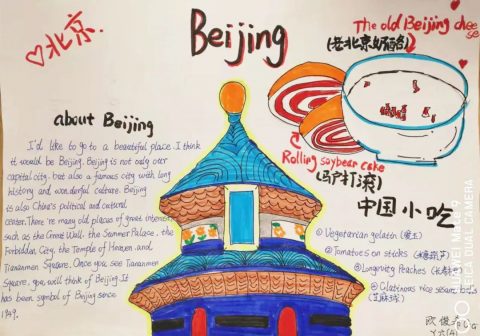 北京
Beijing
The old Beijing cheese
(老北京奶酪)
about Beijing
I'd like to go to a beautiful place. I think
it would be Beijing. Beijing is not only our
capital city, but also a famous city with long
history and wonderful culture. Beijing
is also China's political and cultural
center. There're many old places of great interest,
such as the Great Wall, the Summer Palace, the
Forbidden City, the Temple of Heaven and
Tiananmen Square. Once you see Tiananmen
Square, you will think of Beijing. It
has been symbol of Beijing since
1949.
Rolling soybean cake
(驴打滚)
中国小吃
① Vegetarian gelatin
② Tomatoes on sticks
③ Longevity Peaches
④ Glutinous rice sesame balls
HUAWEI Mate 9
LEICA DUAL CAMERA